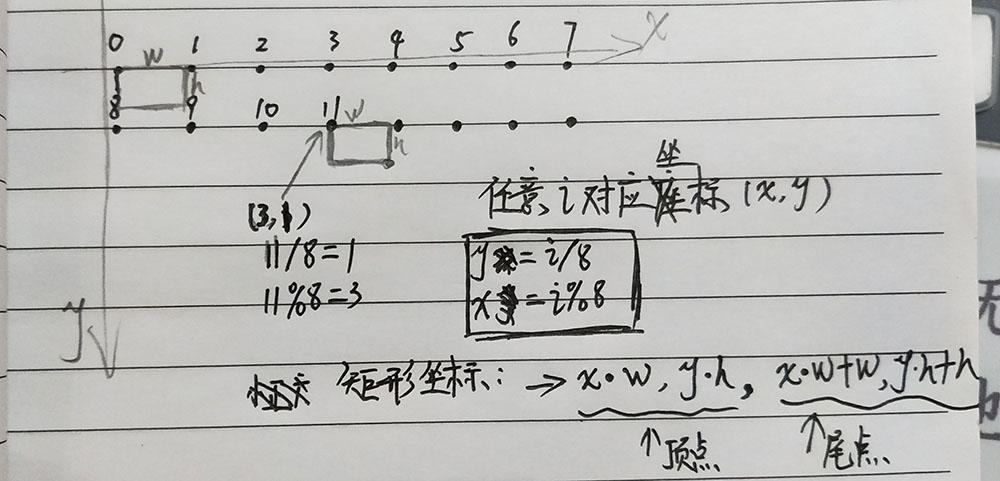 0 1 2 3 4 5 6 7 X
w h
8 9 10 11 w h
任意i对应坐标(x,y)
(3,1)
11/8=1
11%8=3
y=i/8
x=i%8
y
矩形坐标: → x·w, y·h, x·w+w, y·h+h
↑顶点 ↑尾点
无